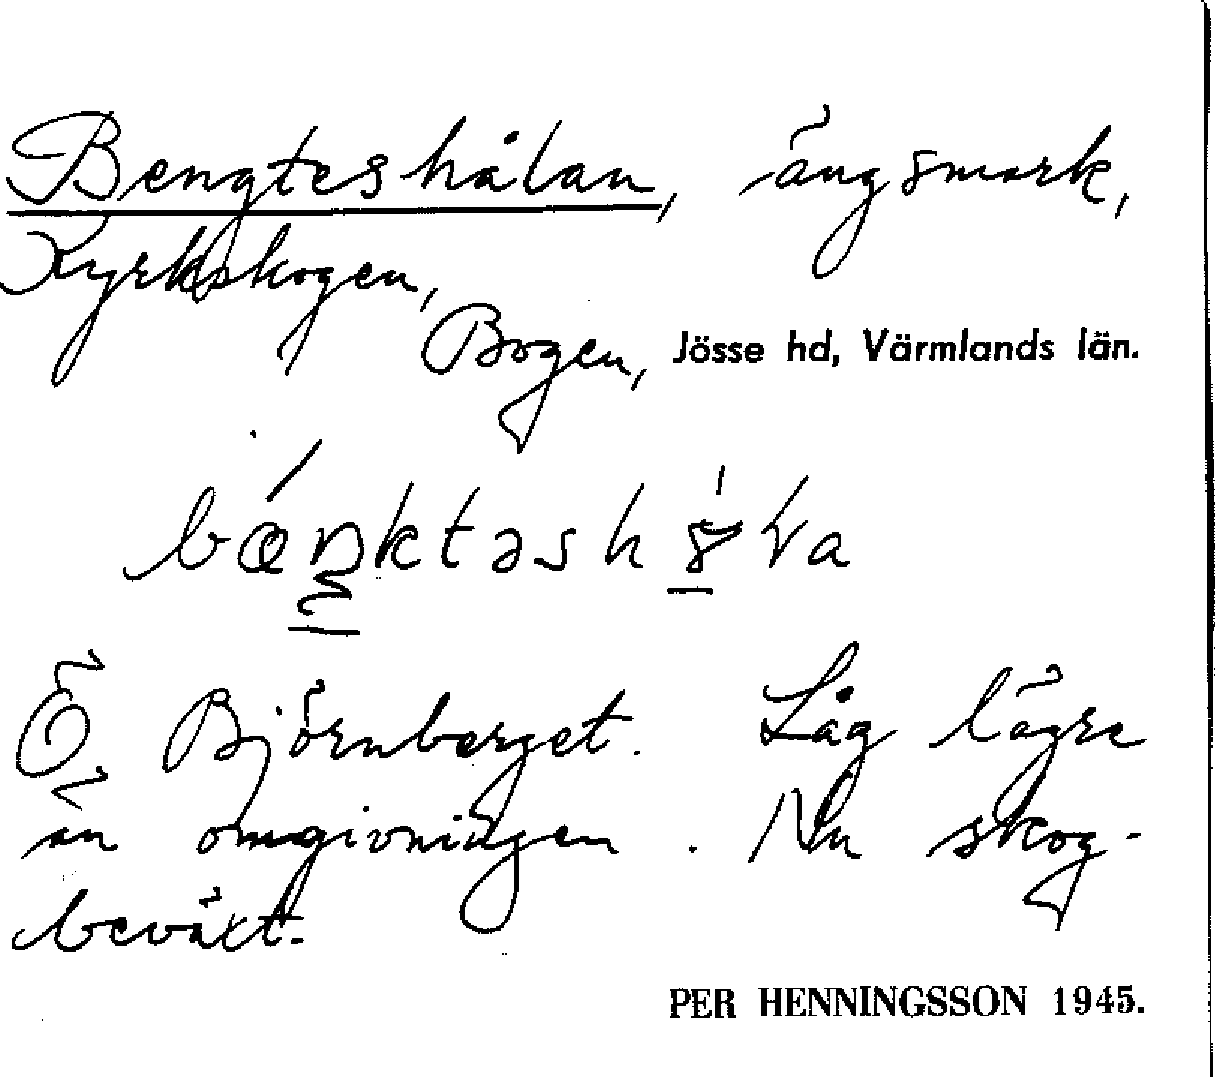 Bengteshålan, ängsmark,
Kyrkskogen,
Bogen, Jösse hd, Värmlands län.
Ö Björnberget. Låg lägre
än omgivningen. Nu skog-
beväxt.
PER HENNINGSSON 1945.